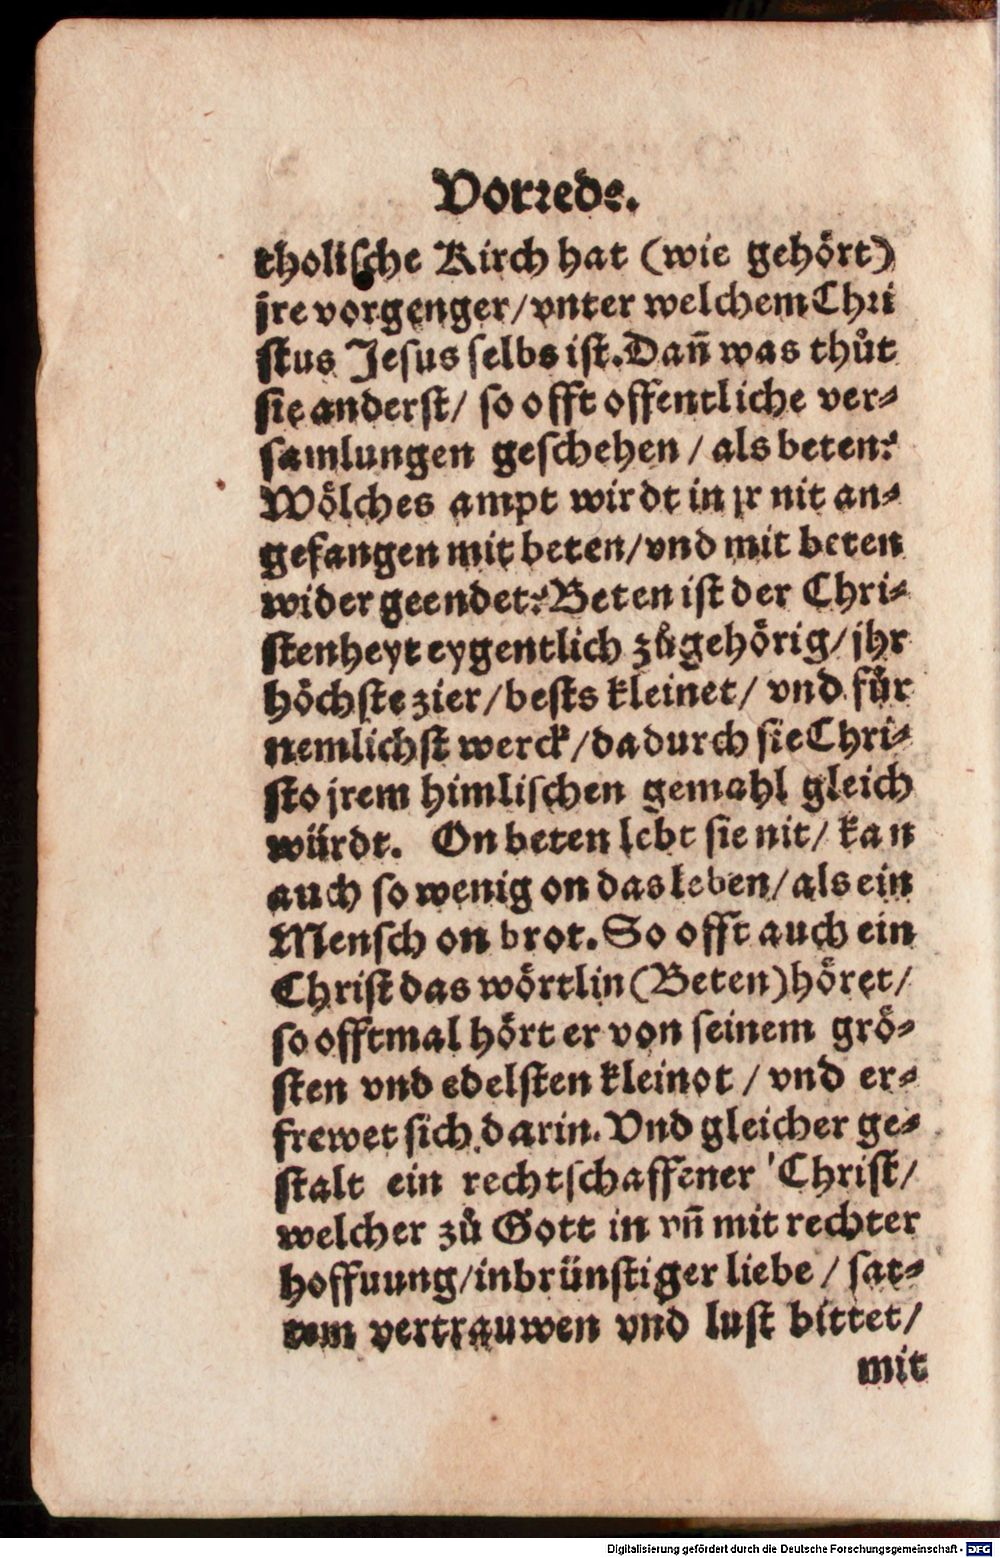 Vorrede.
tholische Kirch hat (wie gehört)
jre vorgenger/vnter welchem Chri
stus Jesus selbs ist. Dañ was thůt
sie anderst/ so offt offentliche ver⸗
samlungen geschehen / als beten?
Wölches ampt wirdt in jr nit an⸗
gefangen mit beten/vnd mit beten
wider geendet? Beten ist der Chri⸗
stenheyt eygentlich zůgehörig/ jhr
höchste zier/bests kleinet/ vnd für
nemlichst werck/dadurch sie Chri⸗
sto jrem himlischen gemahl gleich
würdt. On beten lebt sie nit/ kan
auch so wenig on das leben/als ein
Mensch on brot. So offt auch ein
Christ das wörtlin (Beten) höret/
so offtmal hört er von seinem grö⸗
sten vnd edelsten kleinot / vnd er⸗
frewet sich darin. Vnd gleicher ge⸗
stalt ein rechtschaffener Christ/
welcher zů Gott in vñ mit rechter
hoffuung/inbrünstiger liebe / sat⸗
tem vertrauwen vnd lust bittet/
mit
Digitalisierung gefördert durch die Deutsche Forschungsgemeinschaft - DFG